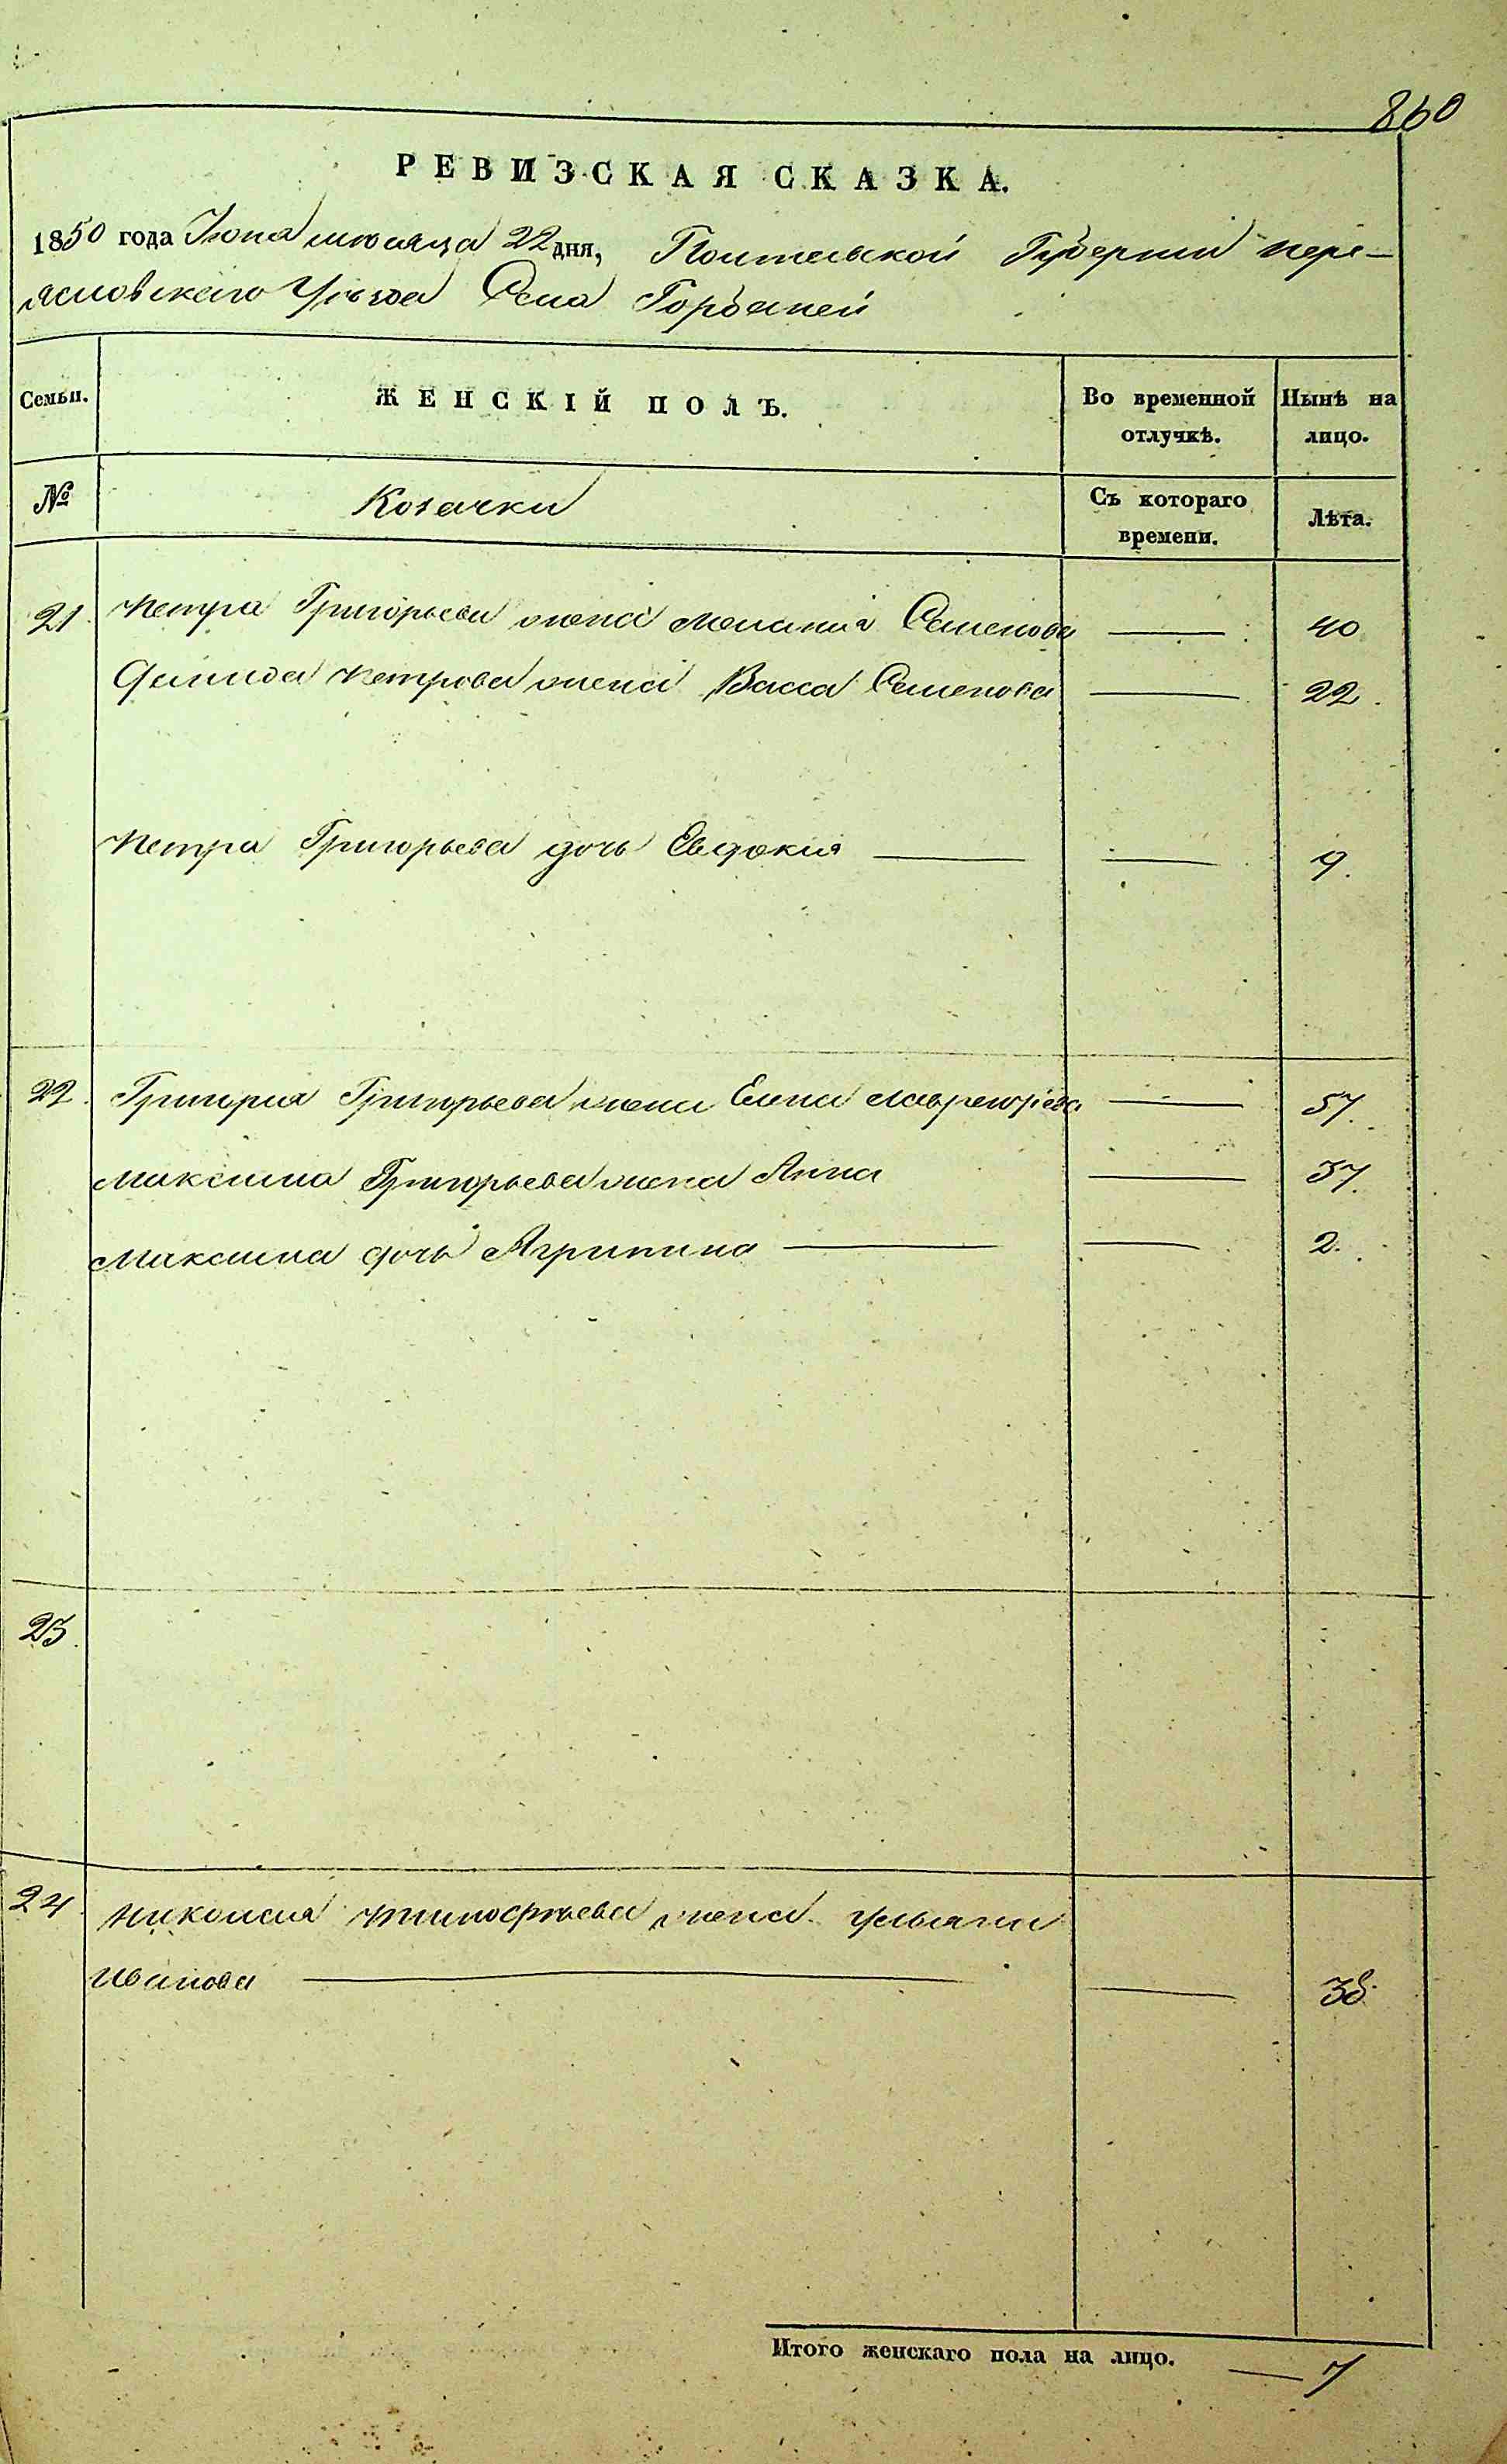 860
РЕВИЗСКАЯ СКАЗКА.
1850 года Июня месяца 22 дня, Полтавской Губернии Пере-
ясловского Уѣзда Села Горбаней
Семьи. ЖЕНСКІЙ ПОЛЪ. Во временной отлучкѣ. Нынѣ на лицо.
№ Козачки Съ котораго времени. Лѣта.
21. Петра Григорьева жена Мелания Семенова — 40
Петрова жена Васса Семенова — 22.
Петра Григорьева дочь Евдокия — — 9.
22. Григория Григорьева жена Елена — 57.
Максима Григорьева жена Анна — 37.
Максима дочь Агрипина — — 2.
23.
24. Николая Тимофѣева жена Ульяна
Иванова — — 38.
Итого женскаго пола на лицо. — 7